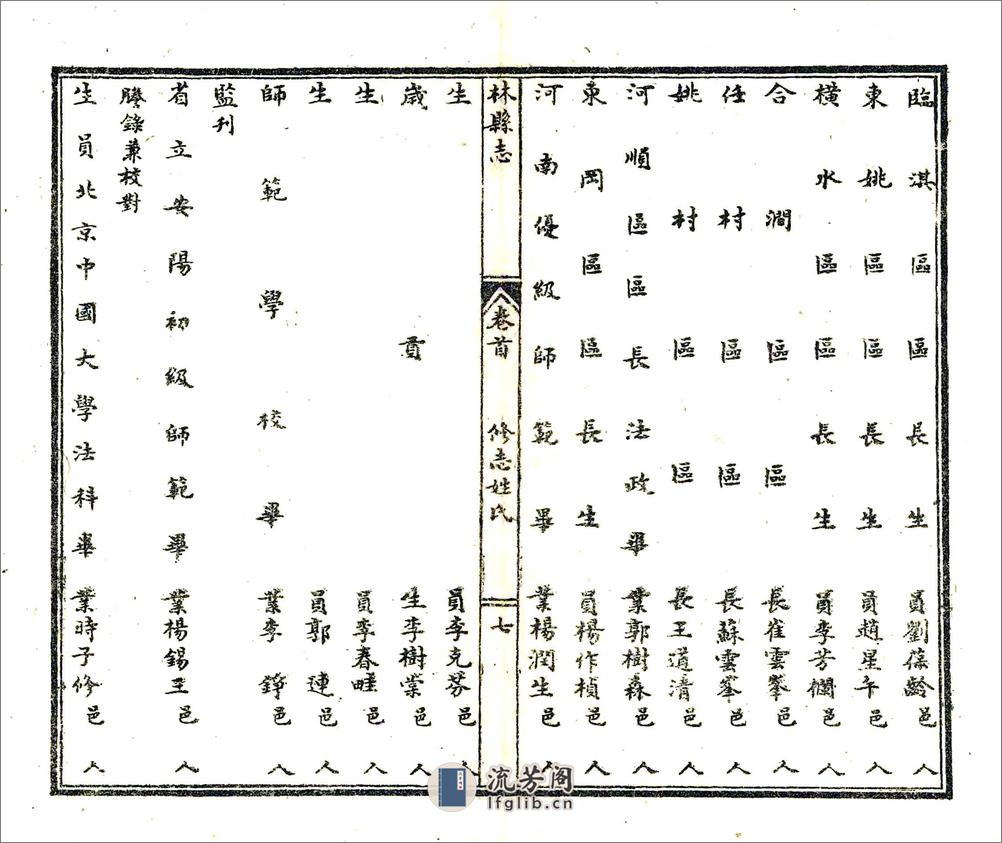 臨淇區區長生員劉葆齡邑人
東姚區區長生員趙星午邑人
橫水區區長生員李芳欄邑人
合澗區區長崔雲峯邑人
任村區區長蘇雲峯邑人
姚村區區長王道清邑人
河順區區長法政畢業郭樹森邑人
東岡區區長生員楊作楨邑人
河南優級師範畢業楊潤生邑人
林縣志
卷首 修志姓氏
七
生員李克芬邑人
歲貢生李樹棠邑人
生員李春畦邑人
生員郭連邑人
師範學校畢業李錚邑人
監刊
省立安陽初級師範畢業楊錫王邑人
謄錄兼校對
生員北京中國大學法科畢業時子修邑人
流芳阁
lfglib.cn